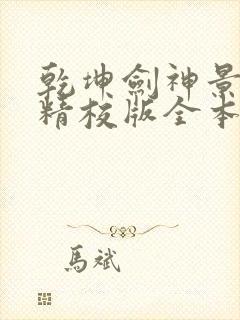 乾坤劍神景
精校版全本
馬斌